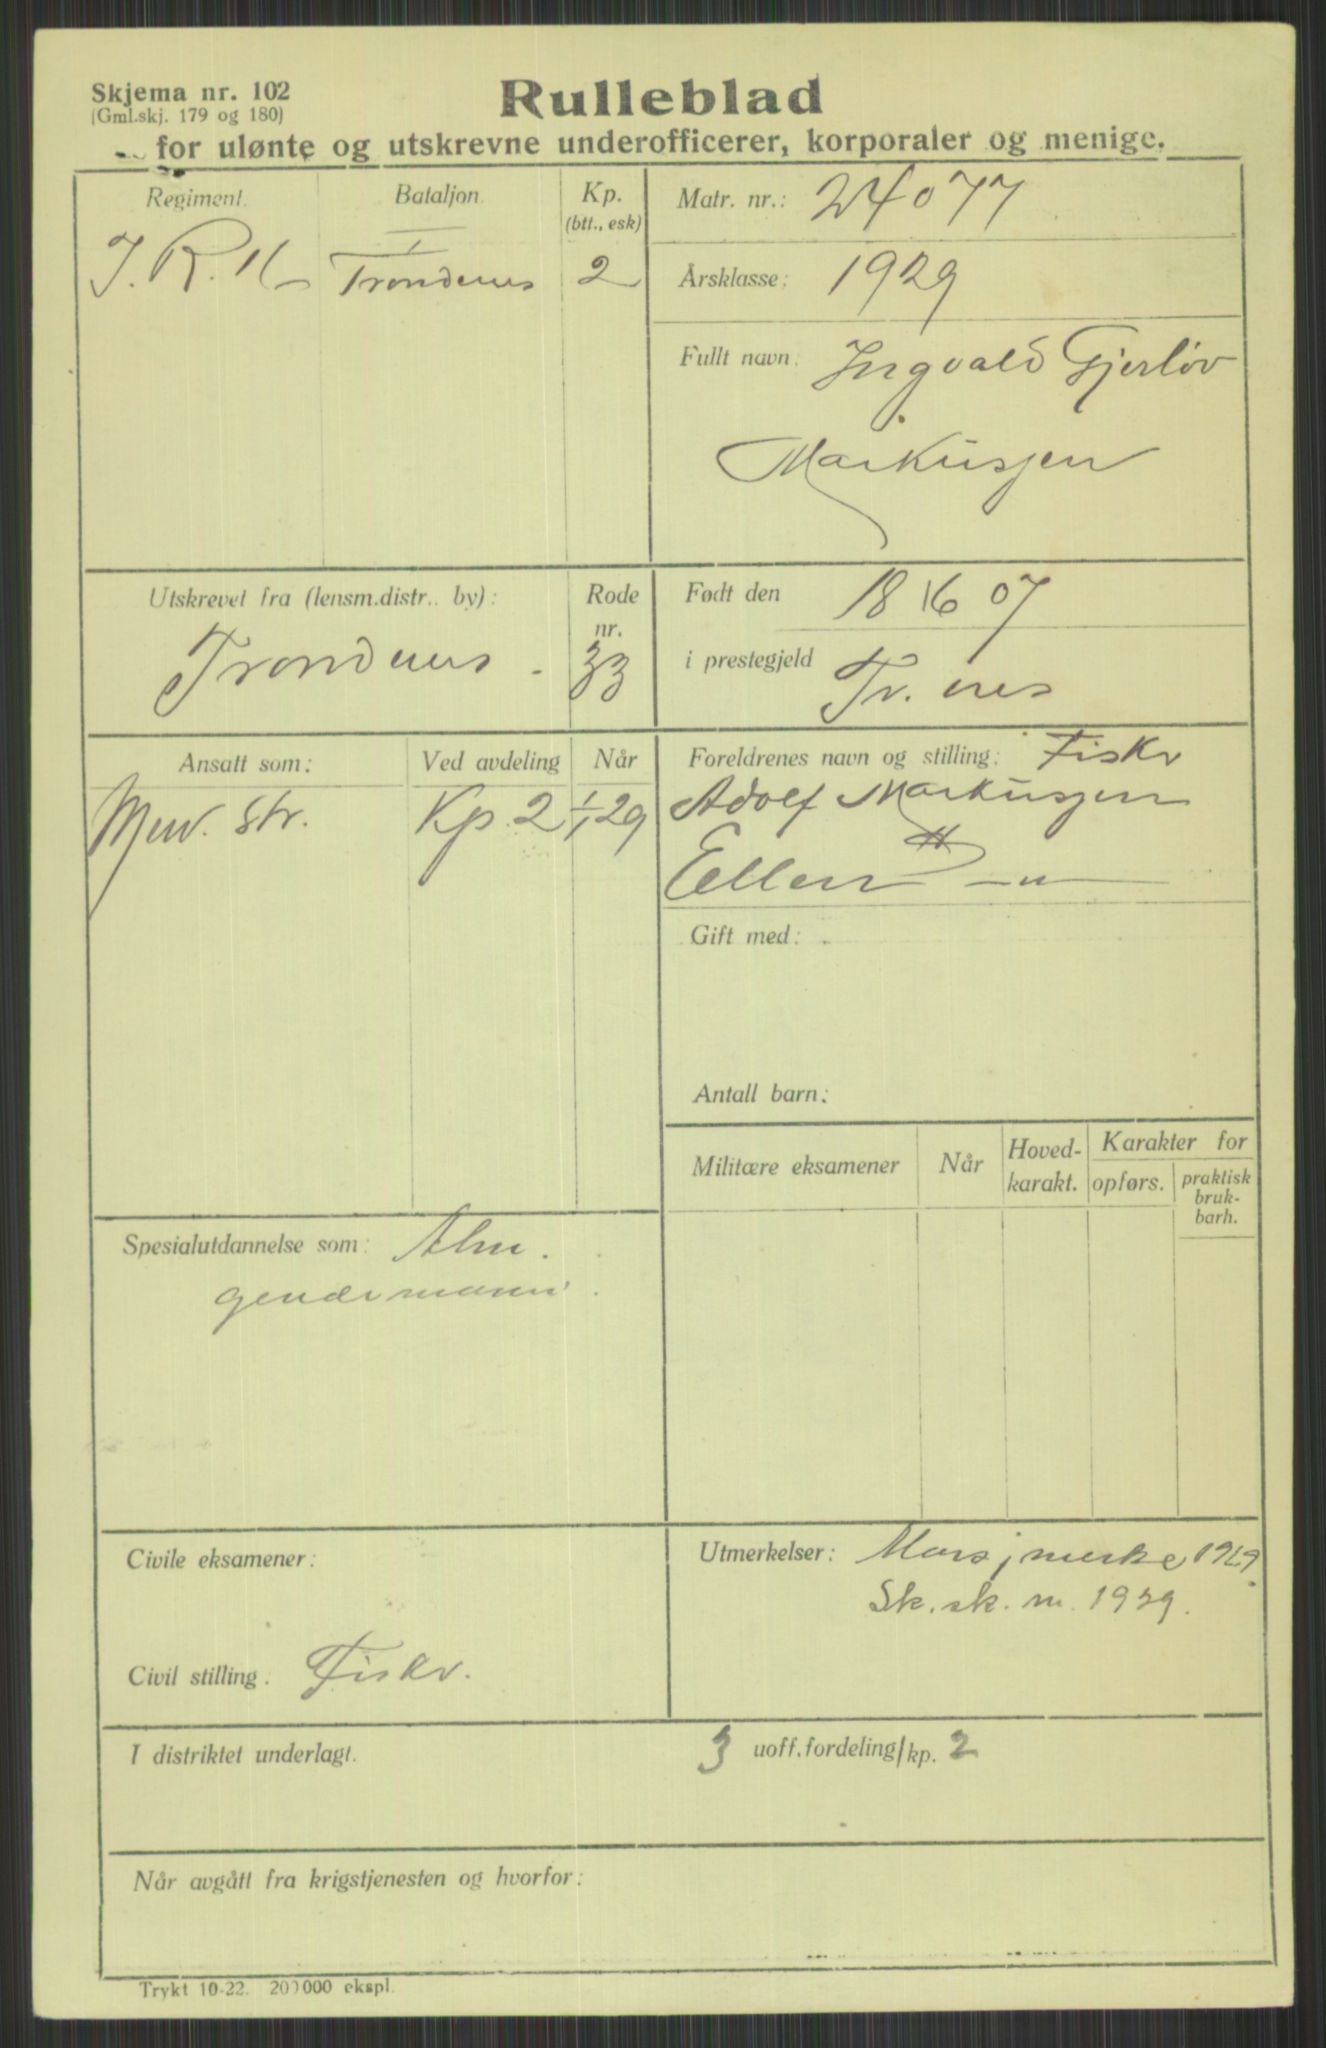 Skjema nr. 102
(Gml.skj. 179 og 180)
Rulleblad
for ulønte og utskrevne underofficerer, korporaler og menige.
Regiment. Bataljon. Kp. (btt., esk)
I
J. R. 16 Trondenes 2
Matr. nr.: 24077
Årsklasse: 1929
Fullt navn: Ingvald Gjerløv
Markussen
Utskrevet fra (lensm.distr.. by): Rode nr.
Trondenes - 33
Født den 18/6 07
i prestegjeld Tr. nes
Ansatt som: Ved avdeling Når
Men. str. Kp. 2 1/1 29
Foreldrenes navn og stilling: Fiskr
Adolf Markussen
Ellen — " —
Gift med:
Antall barn:
Militære eksamener Når Hoved-karakt. Karakter for
opførs. praktisk bruk-barh.
Spesialutdannelse som: Alm.
geværmann.
Civile eksamener:
Civil stilling. Fiskr.
Utmerkelser: Marsjmerke 1929.
Sk. sk. m. 1929.
I distriktet underlagt. 3 uoff.fordeling/kp. 2
Når avgått fra krigstjenesten og hvorfor:
Trykt 10-22. 200000 ekspl.